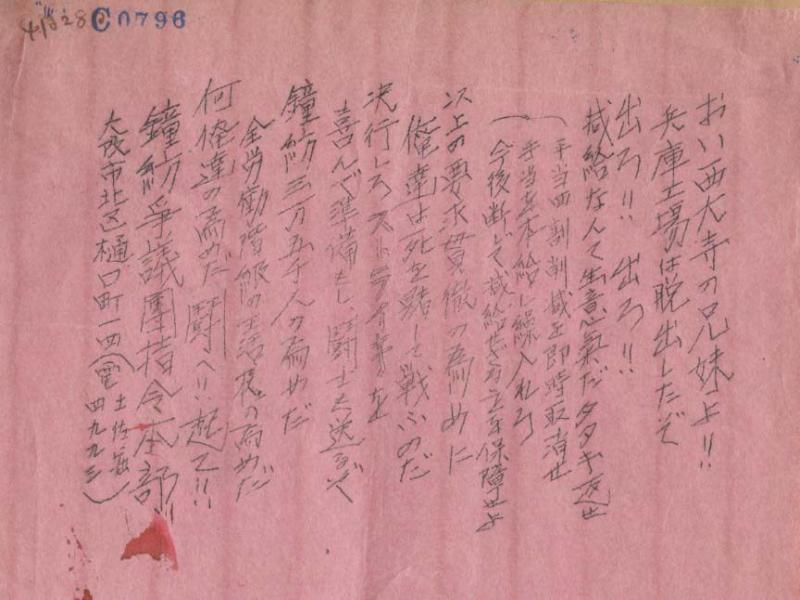 4/928 C0796
おい西大寺の兄妹よ!!
兵庫工場は脱出したぞ
出ろ!! 出ろ!!
減給なんて生意気だタタキ返せ
手当四割削減を即時取消せ
手当を本給に繰入れろ
今後断じて減給せざることを保障せよ
以上の要求貫徹の為めに
俺達は死を賭して戦ふのだ
決行しろストライキを
喜んで準備もし闘士も送るぞ
鐘紡三万五千人の為めだ
全労働階級の生活権の為めだ
何俺達の為めだ 闘へ!! 起て!!
鐘紡爭議團指令本部!!
大阪市北区樋口町一四(電 土佐堀四九九三)